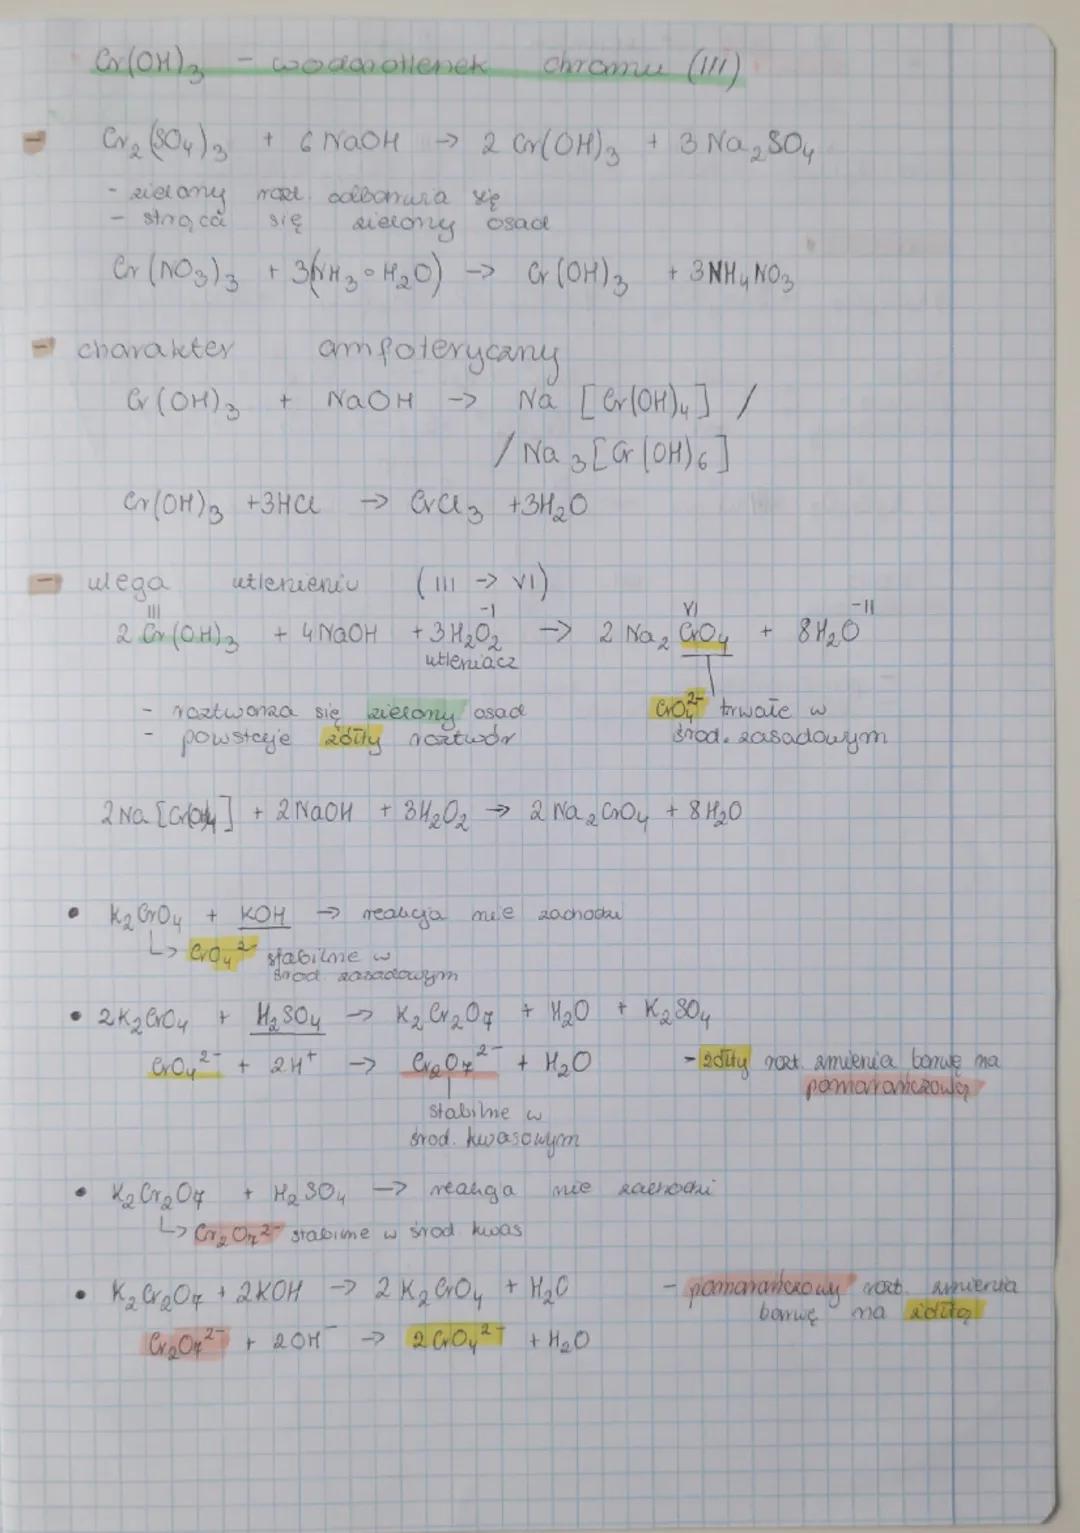 Cr(OH)₃ - wodorotlenek chromu (III)
- Cr₂(SO₄)₃ + 6 NaOH → 2 Cr(OH)₃ + 3 Na₂SO₄
- zielony rozt. odbarwia się
- strąca się zielony osad
Cr(NO₃)₃ + 3(NH₃∘H₂O) → Cr(OH)₃ + 3NH₄NO₃
- charakter amfoteryczny
Cr(OH)₃ + NaOH → Na [Cr(OH)₄] /
/ Na₃[Cr(OH)₆]
Cr(OH)₃ + 3HCl → CrCl₃ + 3H₂O
- ulega utlenieniu (III → VI)
III -I VI -II
2 Cr(OH)₃ + 4 NaOH + 3 H₂O₂ → 2 Na₂CrO₄ + 8 H₂O
utleniacz
- roztwarza się zielony osad
CrO₄²⁻ trwałe w
- powstaje żółty roztwór
środ. zasadowym
2 Na [Cr(OH)₄] + 2 NaOH + 3H₂O₂ → 2 Na₂CrO₄ + 8 H₂O
• K₂CrO₄ + KOH → reakcja nie zachodzi
↳ CrO₄²⁻ stabilne w
środ. zasadowym
• 2K₂CrO₄ + H₂SO₄ → K₂Cr₂O₇ + H₂O + K₂SO₄
CrO₄²⁻ + 2H⁺ → Cr₂O₇²⁻ + H₂O - żółty rozt. zmienia barwę na
pomarańczową
stabilne w
środ. kwasowym
• K₂Cr₂O₇ + H₂SO₄ → reakcja nie zachodzi
↳ Cr₂O₇²⁻ stabilne w środ kwas
• K₂Cr₂O₇ + 2KOH → 2 K₂CrO₄ + H₂O - pomarańczowy rozt. zmienia
barwę na żółtą
Cr₂O₇²⁻ + 2OH⁻ → 2 CrO₄²⁻ + H₂O